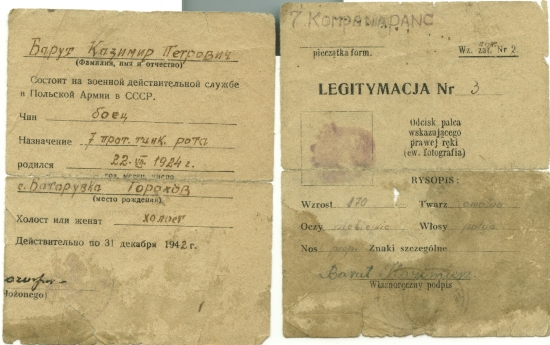 Барут Казимир Петрович
(Фамилия, имя и отчество)
Состоит на военной действительной службе
в Польской Армии в СССР.
Чин боец
Назначение 7 прот. танк. рота
родился 22-VII 1924 г.
год, месяц, число
с. Батарувка Горохов
(место рождения)
Холост или женат холост
Действительно по 31 декабря 1942 г.
7 KOMPANIA
pieczątka form.
Wz. zał. Nr 2.
LEGITYMACJA Nr 3
Odcisk palca
wskazującego
prawej ręki
(ew. fotografia)
RYSOPIS:
Wzrost 170 Twarz
Oczy niebieskie Włosy
Nos Znaki szczególne
Barut Kazimierz
Własnoręczny podpis